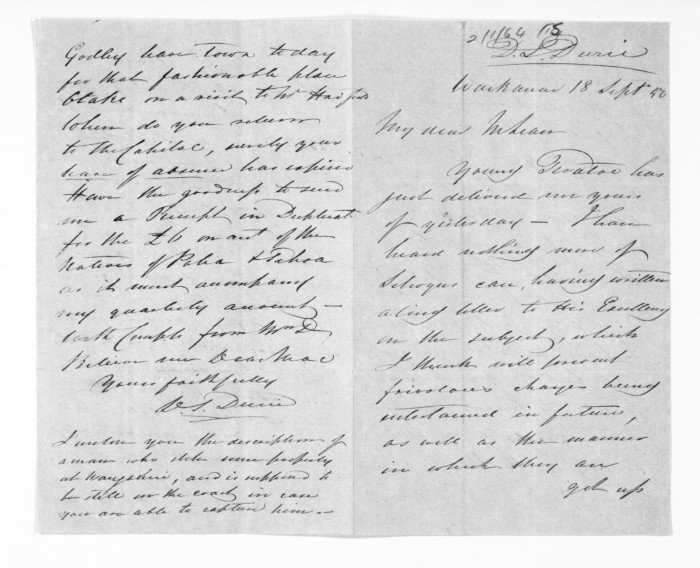 D. S. Durie
Waikanae 18 Sept 50
My dear McLean
Young has
just delivered me yours
of yesterday — I have
heard nothing more of
case, having written
a long letter to His Excellency
on the subject, which
I think will prevent
frivolous charges being
entertained in future,
as well as the manner
in which they are
get up
Godley have town to day
for that fashionable place
Otaki on a visit to Mr Hadfield
When do you return
to the Capital, surely your
leave of absence has expired
Have the goodness to send
me a Receipt in Duplicate
for the £6 on acct of the
Natives of &
as it must accompany
my quarterly account —
with Compts from Mrs D.
Believe me Dear Mac
Yours faithfully
D. S. Durie
I enclose you the description of
a man who stole some property
at Wanganui, and is supposed to
be still on the coast in case
you are able to capture him —